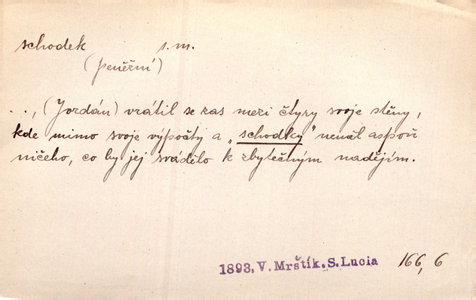 schodek s.m.
(peněžní)
..., (Jordán) vrátil se zas mezi čtyry svoje stěny,
kde mimo svoje výpočty a „schodky" neměl aspoň
ničeho, co by jej svádělo k zbytečným nadějím.
1893, V. Mrštík. S. Lucia 166, 6